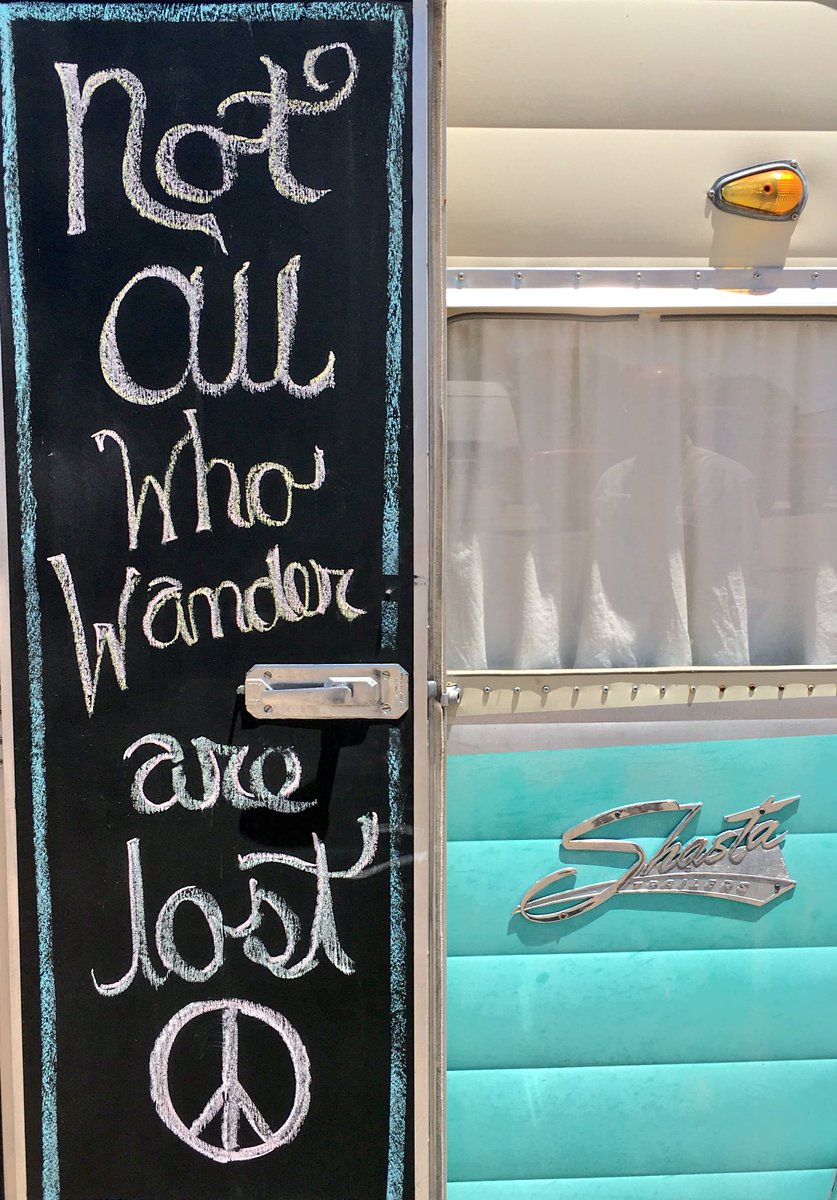 Not
all
who
Wander
are
lost
Shasta
TRAILERS